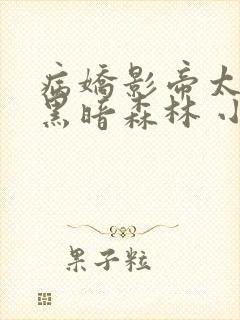 病嬌影帝太
黑暗森林 小
果子粒